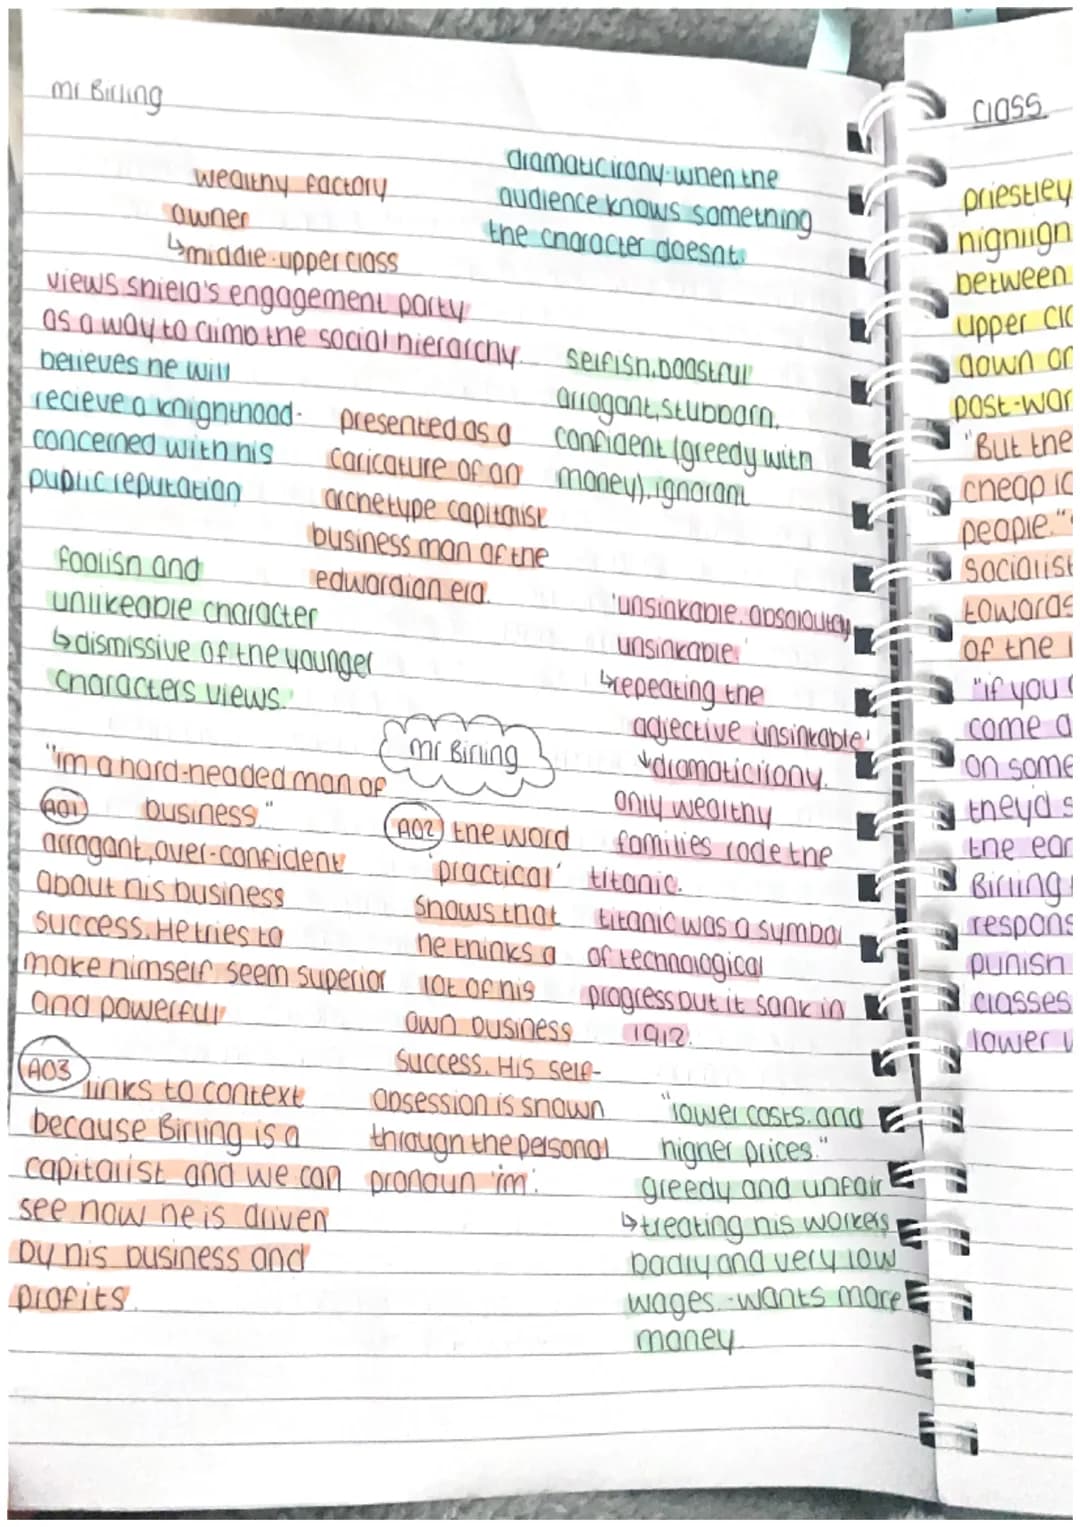 mr Birling
wealthy factory
owner
↳middle-upper class
dramatic irony-when the
audience knows something
the character doesnt.
views shiela's engagement party
as a way to climb the social hierarchy.
believes he will
recieve a knighthood-
concerned with his
public reputation
presented as a
caricature of an
archetype capitalist
business man of the
edwardian era.
selfish, boastful
arrogant, stubborn,
confident (greedy with
money), ignorant
foolish and
unlikeable character
↳dismissive of the younger
characters views.
'unsinkable, absoloutely
unsinkable.'
↳repeating the
adjective 'unsinkable'
↓dramatic irony.
only wealthy
families rode the
titanic.
titanic was a symbol
of technological
progress but it sank in
1912.
mr Birling
"im a hard-headed man of
business."
A01
arrogant, over-confident
about his business
success. He tries to
make himself seem superior
and powerful
A02 the word
'practical'
shows that
he thinks a
lot of his
own business
success. His self-
obsession is shown
through the personal
pronoun 'im'.
A03 links to context
because Birling is a
capitalist and we can
see how he is driven
by his business and
profits.
"lower costs and
higher prices."
greedy and unfair
↳treating his workers
badly and very low
wages. -wants more
money
class
priestley
highligh
between
upper cla
down on
post-war
"But the
cheap l
people."
socialist
towards
of the
"if you
come a
on some
theyd s
the ear
Birling
respons
punish
classes
lower